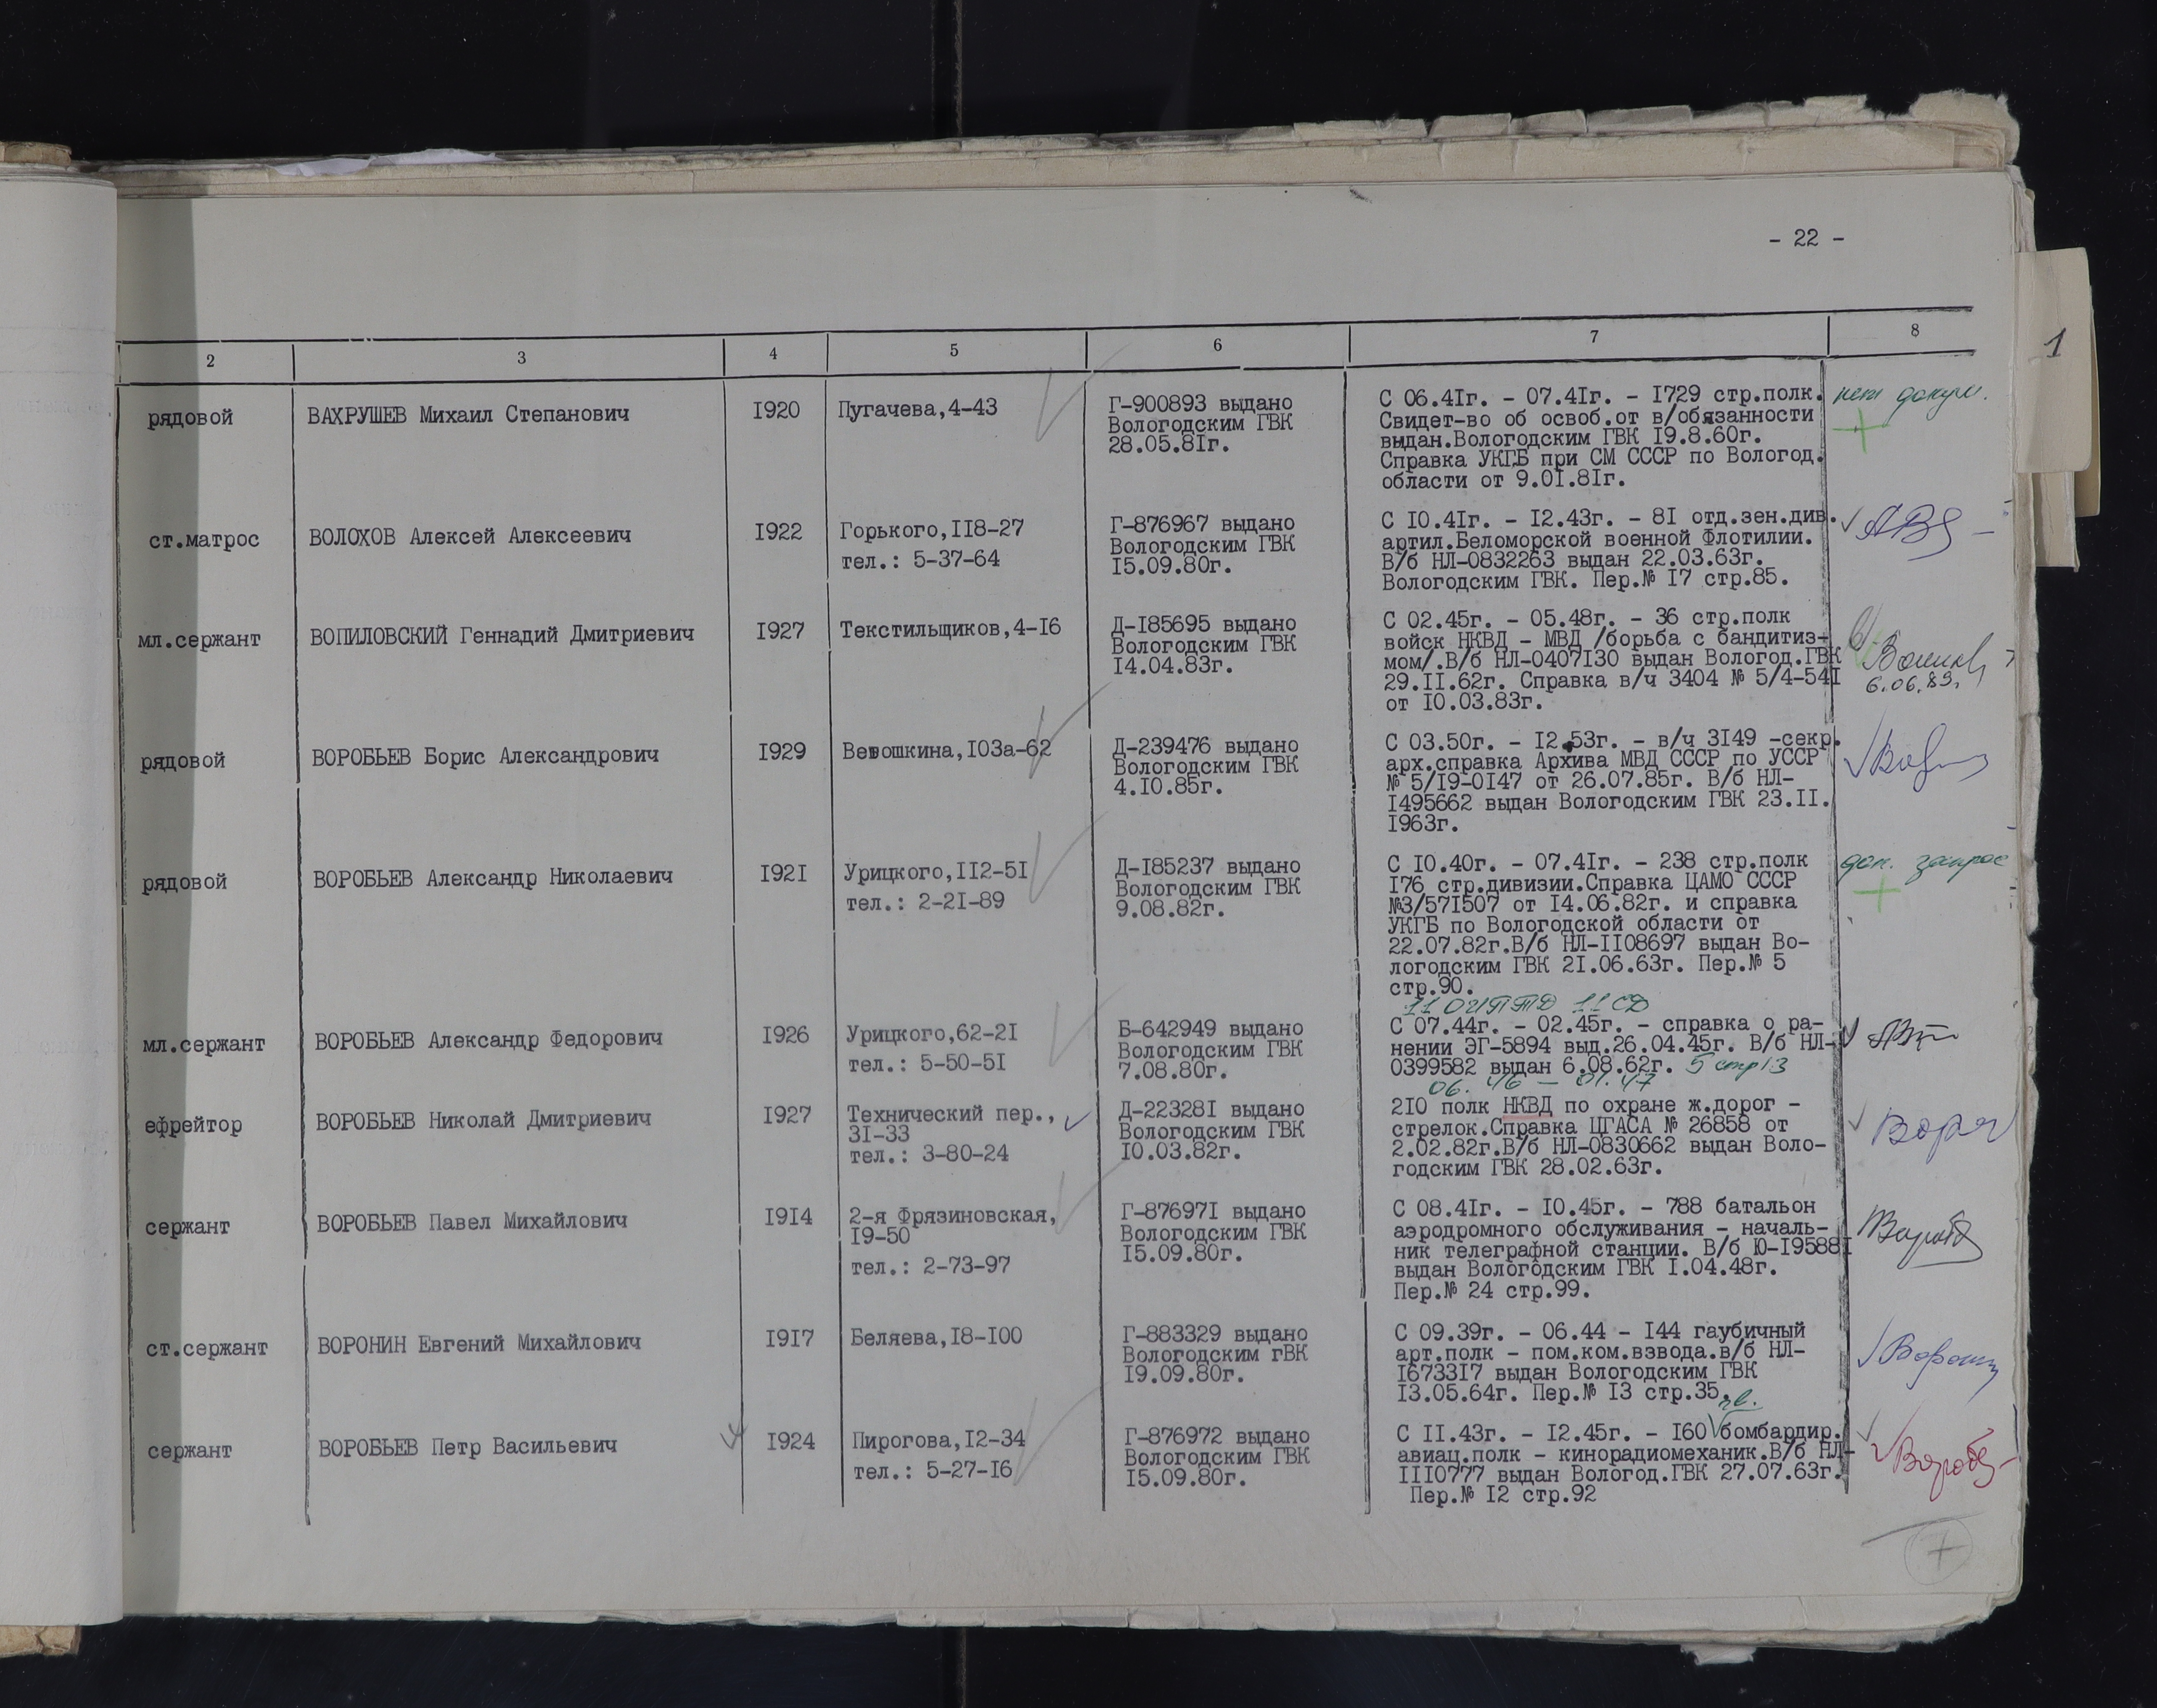 - 22 -
2 3 4 5 6 7 8
1
рядовой ВАХРУШЕВ Михаил Степанович 1920 Пугачева,4-43
Г-900893 выдано
Вологодским ГВК
28.05.81г.
С 06.41г. - 07.41г. - 1729 стр.полк.
Свидет-во об освоб.от в/обязанности
выдан.Вологодским ГВК 19.8.60г.
Справка УКГБ при СМ СССР по Вологод.
области от 9.01.81г.
нет докум.
ст.матрос ВОЛОХОВ Алексей Алексеевич 1922 Горького,118-27
тел.: 5-37-64
Г-876967 выдано
Вологодским ГВК
15.09.80г.
С 10.41г. - 12.43г. - 81 отд.зен.див.
артил.Беломорской военной Флотилии.
В/б НЛ-0832263 выдан 22.03.63г.
Вологодским ГВК. Пер.№ 17 стр.85.
мл.сержант ВОПИЛОВСКИЙ Геннадий Дмитриевич 1927 Текстильщиков,4-16
Д-185695 выдано
Вологодским ГВК
14.04.83г.
С 02.45г. - 05.48г. - 36 стр.полк
войск НКВД - МВД /борьба с бандитиз-
мом/.В/б НЛ-0407130 выдан Вологод.ГВК
29.11.62г. Справка в/ч 3404 № 5/4-541
от 10.03.83г.
6.06.89.
рядовой ВОРОБЬЕВ Борис Александрович 1929 Ветошкина,103а-62
Д-239476 выдано
Вологодским ГВК
4.10.85г.
С 03.50г. - 12.53г. - в/ч 3149 -секр.
арх.справка Архива МВД СССР по УССР
№ 5/19-0147 от 26.07.85г. В/б НЛ-
1495662 выдан Вологодским ГВК 23.11.
1963г.
рядовой ВОРОБЬЕВ Александр Николаевич 1921 Урицкого,112-51
тел.: 2-21-89
Д-185237 выдано
Вологодским ГВК
9.08.82г.
С 10.40г. - 07.41г. - 238 стр.полк
176 стр.дивизии.Справка ЦАМО СССР
№3/571507 от 14.06.82г. и справка
УКГБ по Вологодской области от
22.07.82г.В/б НЛ-1108697 выдан Во-
логодским ГВК 21.06.63г. Пер.№ 5
стр.90.
доп. запрос
11 ОИПТД 11 СД
мл.сержант ВОРОБЬЕВ Александр Федорович 1926 Урицкого,62-21
тел.: 5-50-51
Б-642949 выдано
Вологодским ГВК
7.08.80г.
С 07.44г. - 02.45г. - справка о ра-
нении ЭГ-5894 выд.26.04.45г. В/б НЛ-
0399582 выдан 6.08.62г. 5 стр13
06.46 - 01.47
ефрейтор ВОРОБЬЕВ Николай Дмитриевич 1927 Технический пер.,
31-33
тел.: 3-80-24
Д-223281 выдано
Вологодским ГВК
10.03.82г.
210 полк НКВД по охране ж.дорог -
стрелок.Справка ЦГАСА № 26858 от
2.02.82г.В/б НЛ-0830662 выдан Воло-
годским ГВК 28.02.63г.
сержант ВОРОБЬЕВ Павел Михайлович 1914 2-я Фрязиновская,
19-50
тел.: 2-73-97
Г-876971 выдано
Вологодским ГВК
15.09.80г.
С 08.41г. - 10.45г. - 788 батальон
аэродромного обслуживания - началь-
ник телеграфной станции. В/б Ю-195881
выдан Вологодским ГВК 1.04.48г.
Пер.№ 24 стр.99.
ст.сержант ВОРОНИН Евгений Михайлович 1917 Беляева,18-100
Г-883329 выдано
Вологодским гВК
19.09.80г.
С 09.39г. - 06.44 - 144 гаубичный
арт.полк - пом.ком.взвода.в/б НЛ-
1673317 выдан Вологодским ГВК
13.05.64г. Пер.№ 13 стр.35.
сержант ВОРОБЬЕВ Петр Васильевич 1924 Пирогова,12-34
тел.: 5-27-16
Г-876972 выдано
Вологодским ГВК
15.09.80г.
С 11.43г. - 12.45г. - 160 бомбардир.
авиац.полк - кинорадиомеханик.В/б НЛ-
1110777 выдан Вологод.ГВК 27.07.63г.
Пер.№ 12 стр.92
7